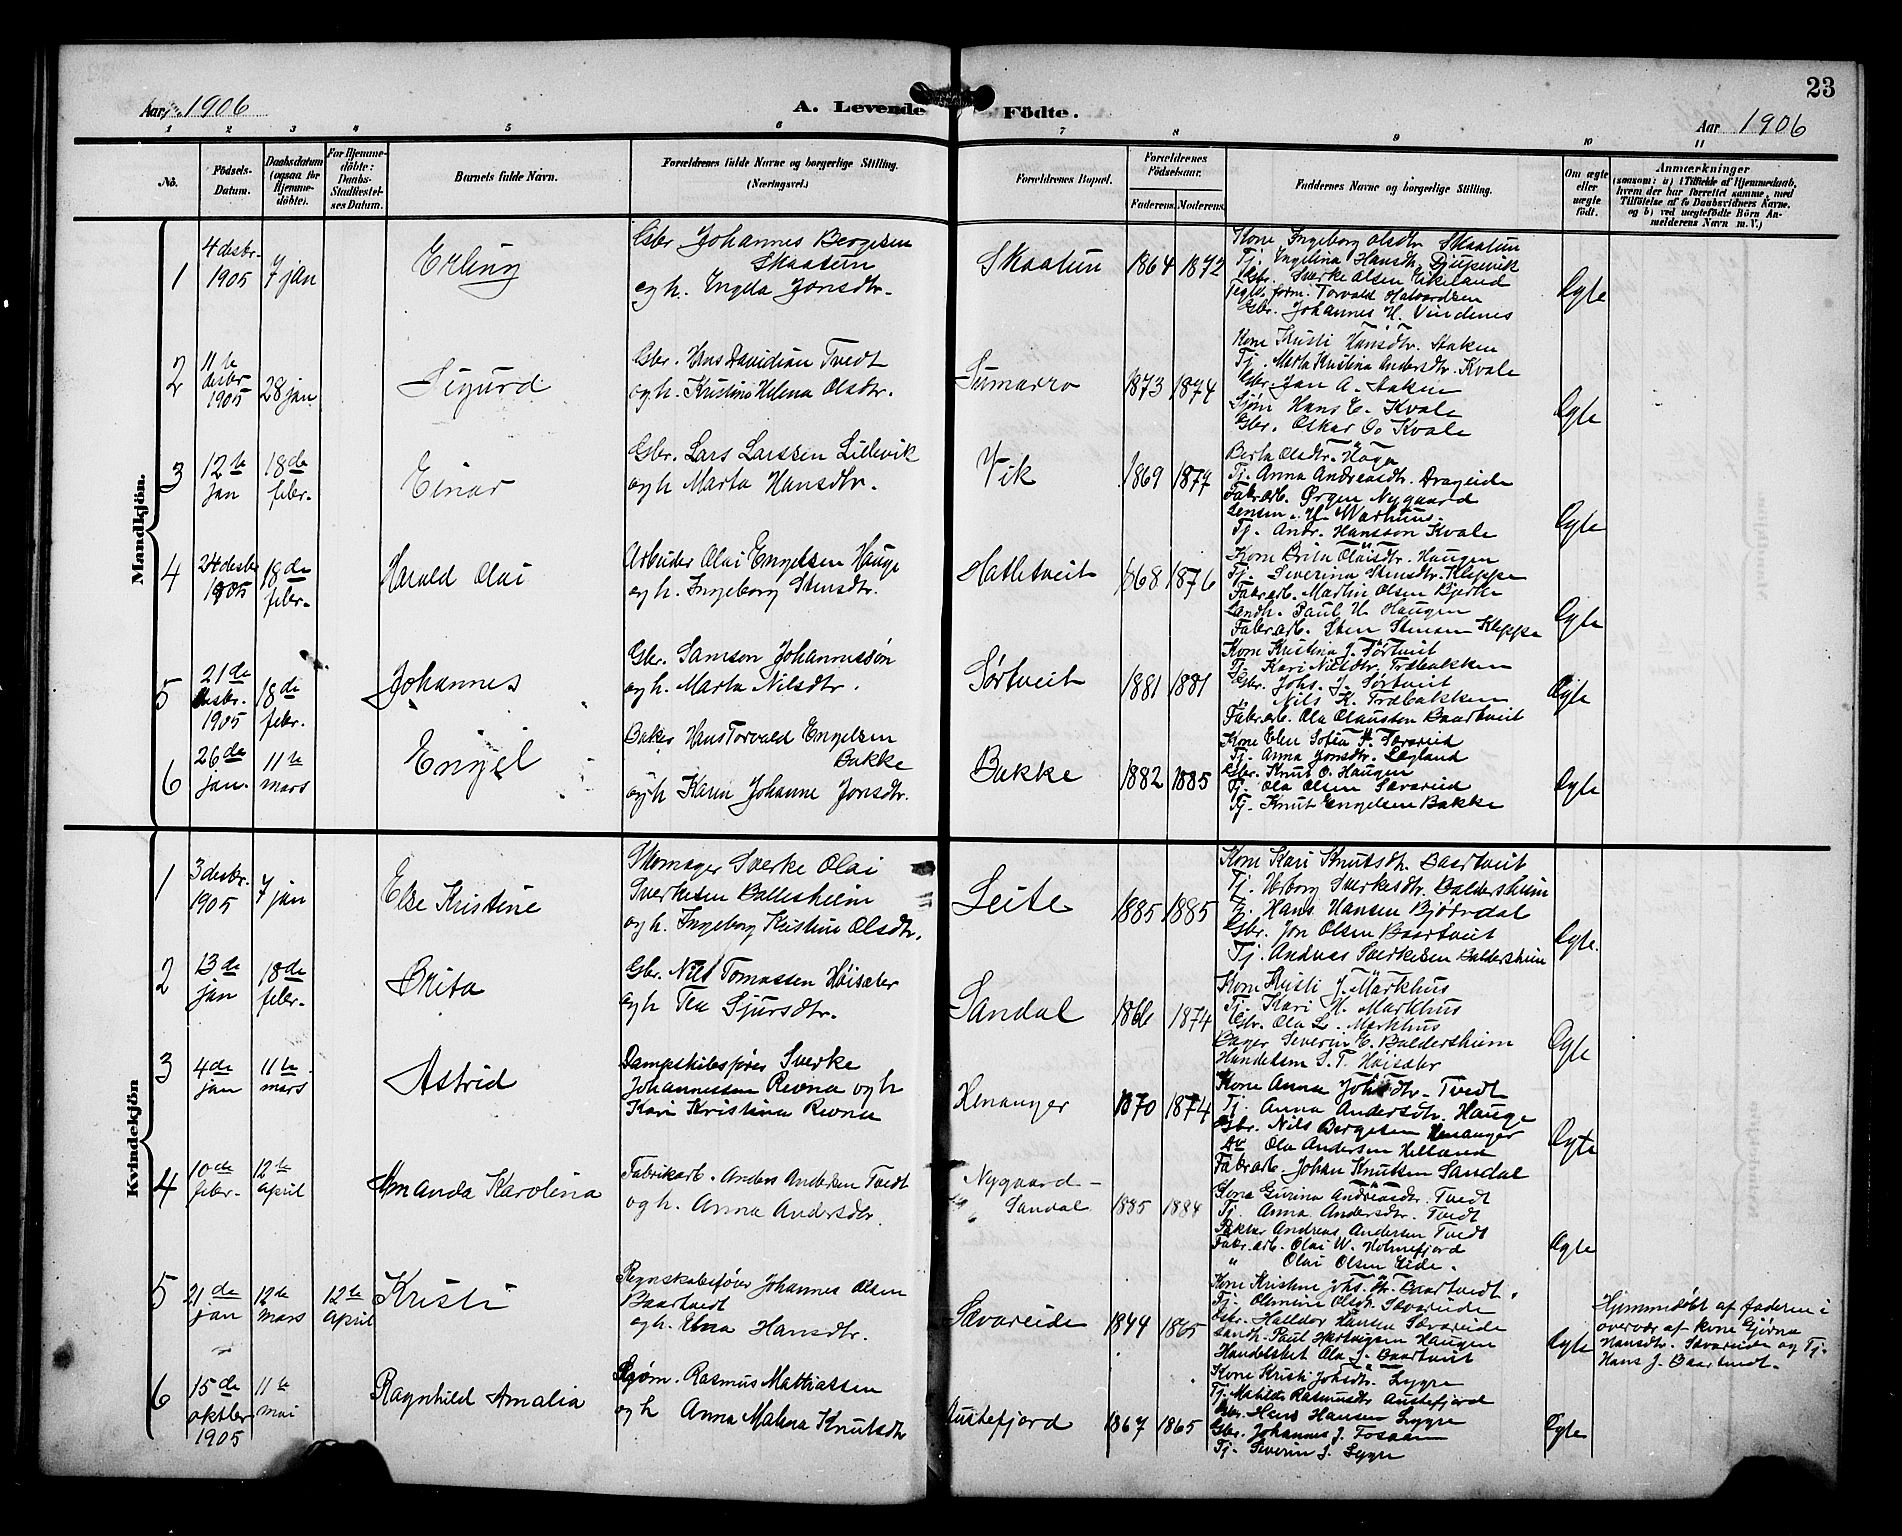 23
Aar 1906
A. Levende Födte.
Aar 1906
1 2 3 4 5 6 7 8 9 10 11
No.
Födsels-Datum.
Daabsdatum (ogsaa for Hjemmedöbte).
For Hjemmedöbte: Daabs-Stadfæstelses Datum.
Barnets fulde Navn.
Forældrenes fulde Navne og borgerlige Stilling.
(Næringsvei.)
Forældrenes Bopæl.
Forældrenes Födselsaar.
Faderens. Moderens.
Faddernes Navne og borgerlige Stilling.
Om ægte eller uægte födt.
Anmærkninger
(saasom: a) i Tilfælde af Hjemmedaab, hvem der har forrettet samme, med Tilföielse af to Daabsvidners Navne, og b) ved uægtefödte Börn Anmelderens Navn m. V.)
Mandkjön.
1
4 desbr. 1905
7 jan
Erling
Gbr Johannes Bergesen
Skaatun
og h. Ingda Jonsdtr.
Skaatun
1864 1872
Kone Ingeborg Olsdtr Skaatun
Tj. Ingelina Hansdtr. Djupevik
Gbr. Sverke Olsen Eikeland
Teglv. form. Torvald Halvardsen
Gbr. Johannes H. Vindenes
Ægte
2
11te desbr 1905
28 jan
Sigurd
Gbr. Hans Davidian Tvedt
og h. Kristine Helena Olsdtr.
Sumarro
1873 1874
Kone Kristi Hansdtr. Staken
Tj. Marta Kristina Andersdtr. Kvale
Gbr. Jan A. Staken
Sjøm Hans E. Kvale
Gbr. Oskar O. Kvale
Ægte
3
12te jan
18de febr.
Einar
Gbr. Lars Larssen Lillevik
og h. Marta Hansdtr.
Vik
1869 1877
Berta Olsdtr. Haga
Tj. Anna Andreasdtr. Drageide
Fabr.arb. Ørgen Nygaard
Lensm. H. Warhuus.
Tj. Andr. Hansson Kvale
Ægte
4
24 desbr 1905
18de febr.
Harald Olai
Arbeider Olai Engelsen Hauge
og h. Ingeborg Stensdtr.
Hatletveit
1868 1876
Kone Brita Olaisdtr. Haugen
Tj. Severina Stensdtr. Kleppe
Fabr.arb. Martin Olsen Bjerke
Landh. Paul H. Haugen
Fabr.arb. Sten Stensen Kleppe
Ægte
5
21de desbr. 1905
18de febr.
Johannes
Gbr. Samson Johannessøn
og h. Marta Nilsdtr.
Sørtveit
1881 1881
Kone Kristina J. Sørtveit
Tj. Kari Nilsdtr. Træbakken
Gbr. Johs. J. Sørtveit
" Nils K. Træbakken
Fabr.arb. Ola Olaussen Baartveit
Ægte
6
26de jan.
11te mars
Engel
Baker Hans Torvald Engelsen
Bakke
og h Karen Johanne Jonsdtr.
Bakke
1882 1885
Kone Elen Sofia P. Sævareid
Tj. Anna Jonsdtr. Lægland
Gbr. Knut O. Haugen
Tj. Ola Olsen Sævareid
Tj. Knut Engelsen Bakke
Ægte
Kvindekjön
1
3 desbr. 1905
7 jan
Else Kristine
Skomager Sverke Olai
Sverkesen Baldersheim
og h. Ingeborg Kristine Olsdtr.
Leite
1885 1885
Kone Kari Knutsdtr. Baartveit
Tj. Herborg Sverkesdtr. Baldersheim
Tj. Hans Hansen Bjørndal
Gbr. Jon Olsen Baartveit
Tj. Andreas Sverkesen Baldersheim
Ægte.
2
13de jan
18de febr.
Brita
Gbr. Nils Tomassen Høisæter
og h Tea Sjursdtr.
Sandal
1866 1874
Kone Kristi J. Markhus
Tj. Kari H. Markhus
Gbr. Ola L. Markhus
Bager Severin E. Baldersheim
Handelsm S. T. Høisæter
Ægte
3
4de jan
11te mars
Astrid
Dampskibsfører Sverke
Johannessen Revna og h
Kari Kristina Revna
Henanger
1870 1874
Kone Anna Johsdtr. Tvedt
Tj. Anna Andersdtr. Hauge
Gbr. Nils Bergesen Henanger
Do Ola Andersen Helland
Fabr.arb. Johan Knutsen Sandal
Ægte
4
10de febr.
12te april
Amanda Karolina
Fabrikarb. Anders Andersen Tvedt
og h. Anna Andersdtr.
Nygaard - Sandal
1885 1884
Kone Gurina Andreasdtr. Tvedt
Tj. Anna Andersdtr. Tvedt
Andreas Andersen Tvedt
Fabr.arb. Olai W. Holmefjord
" Olai Olsen Eide.
Ægte
5
21de jan
12te mars
12te april
Kristi
Regnskabsfører Johannes Olsen
Baartvedt
og h. Elna Hansdtr.
Sævareide
1844 1865
Kone Kristine Johs. Baartvedt.
Tj. Olemine Olsdtr. Sævareide
Gbr. Halldor Hansen Sævareide
Landh. Paul Hartvigsen Haugen
Handelsbet Ola J. Baartveit
Ægte
Hjemmedøbt af faderen i
overvær af kone Gjørna
Hansdtr. Sævareide og Tj.
Hans J. Baartvedt.
6
15de oktbr 1905
11te mai
Ragnhild Amalia
Sjøm. Rasmus Mattiassen
og h Anna Malena Knutsdtr
Austefjord
1867 1865
Kone Kristi Johsdtr. Lygre
Tj. Matilde Rasmusdtr Austefjord
Gbr. Hans Hansen Lygre
Gbr. Johannes J. Fosaas
Tj. Severin J. Lygre
Ægte